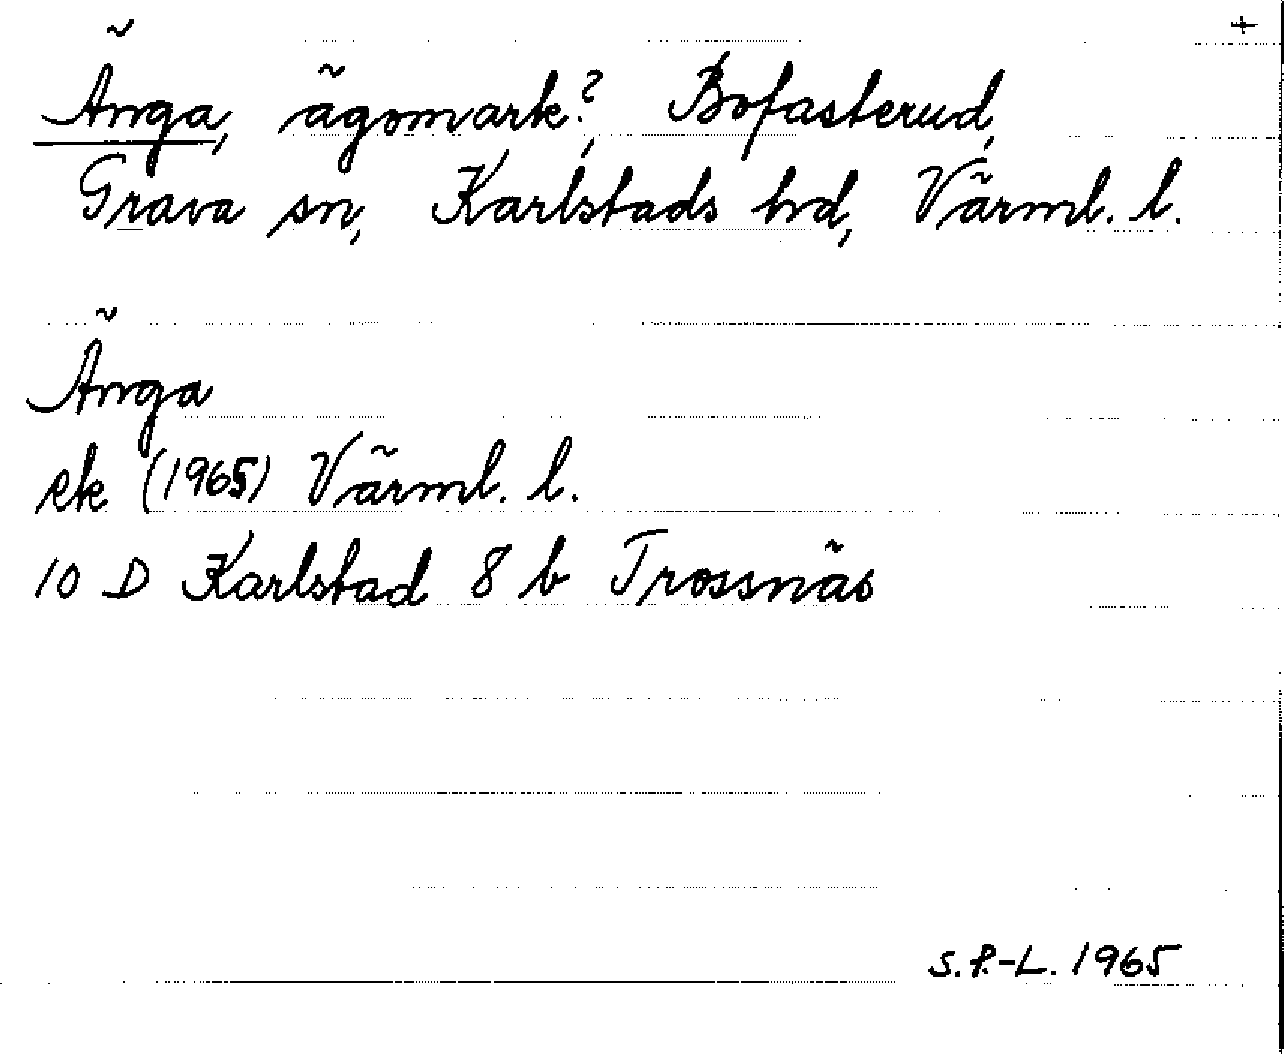 +
Änga, ägomark?, Bofasterud,
Grava sn, Karlstads hd, Värml. l.
Änga
ek (1965) Värml. l.
10 D Karlstad 8 b Trossnäs
S.P.-L. 1965